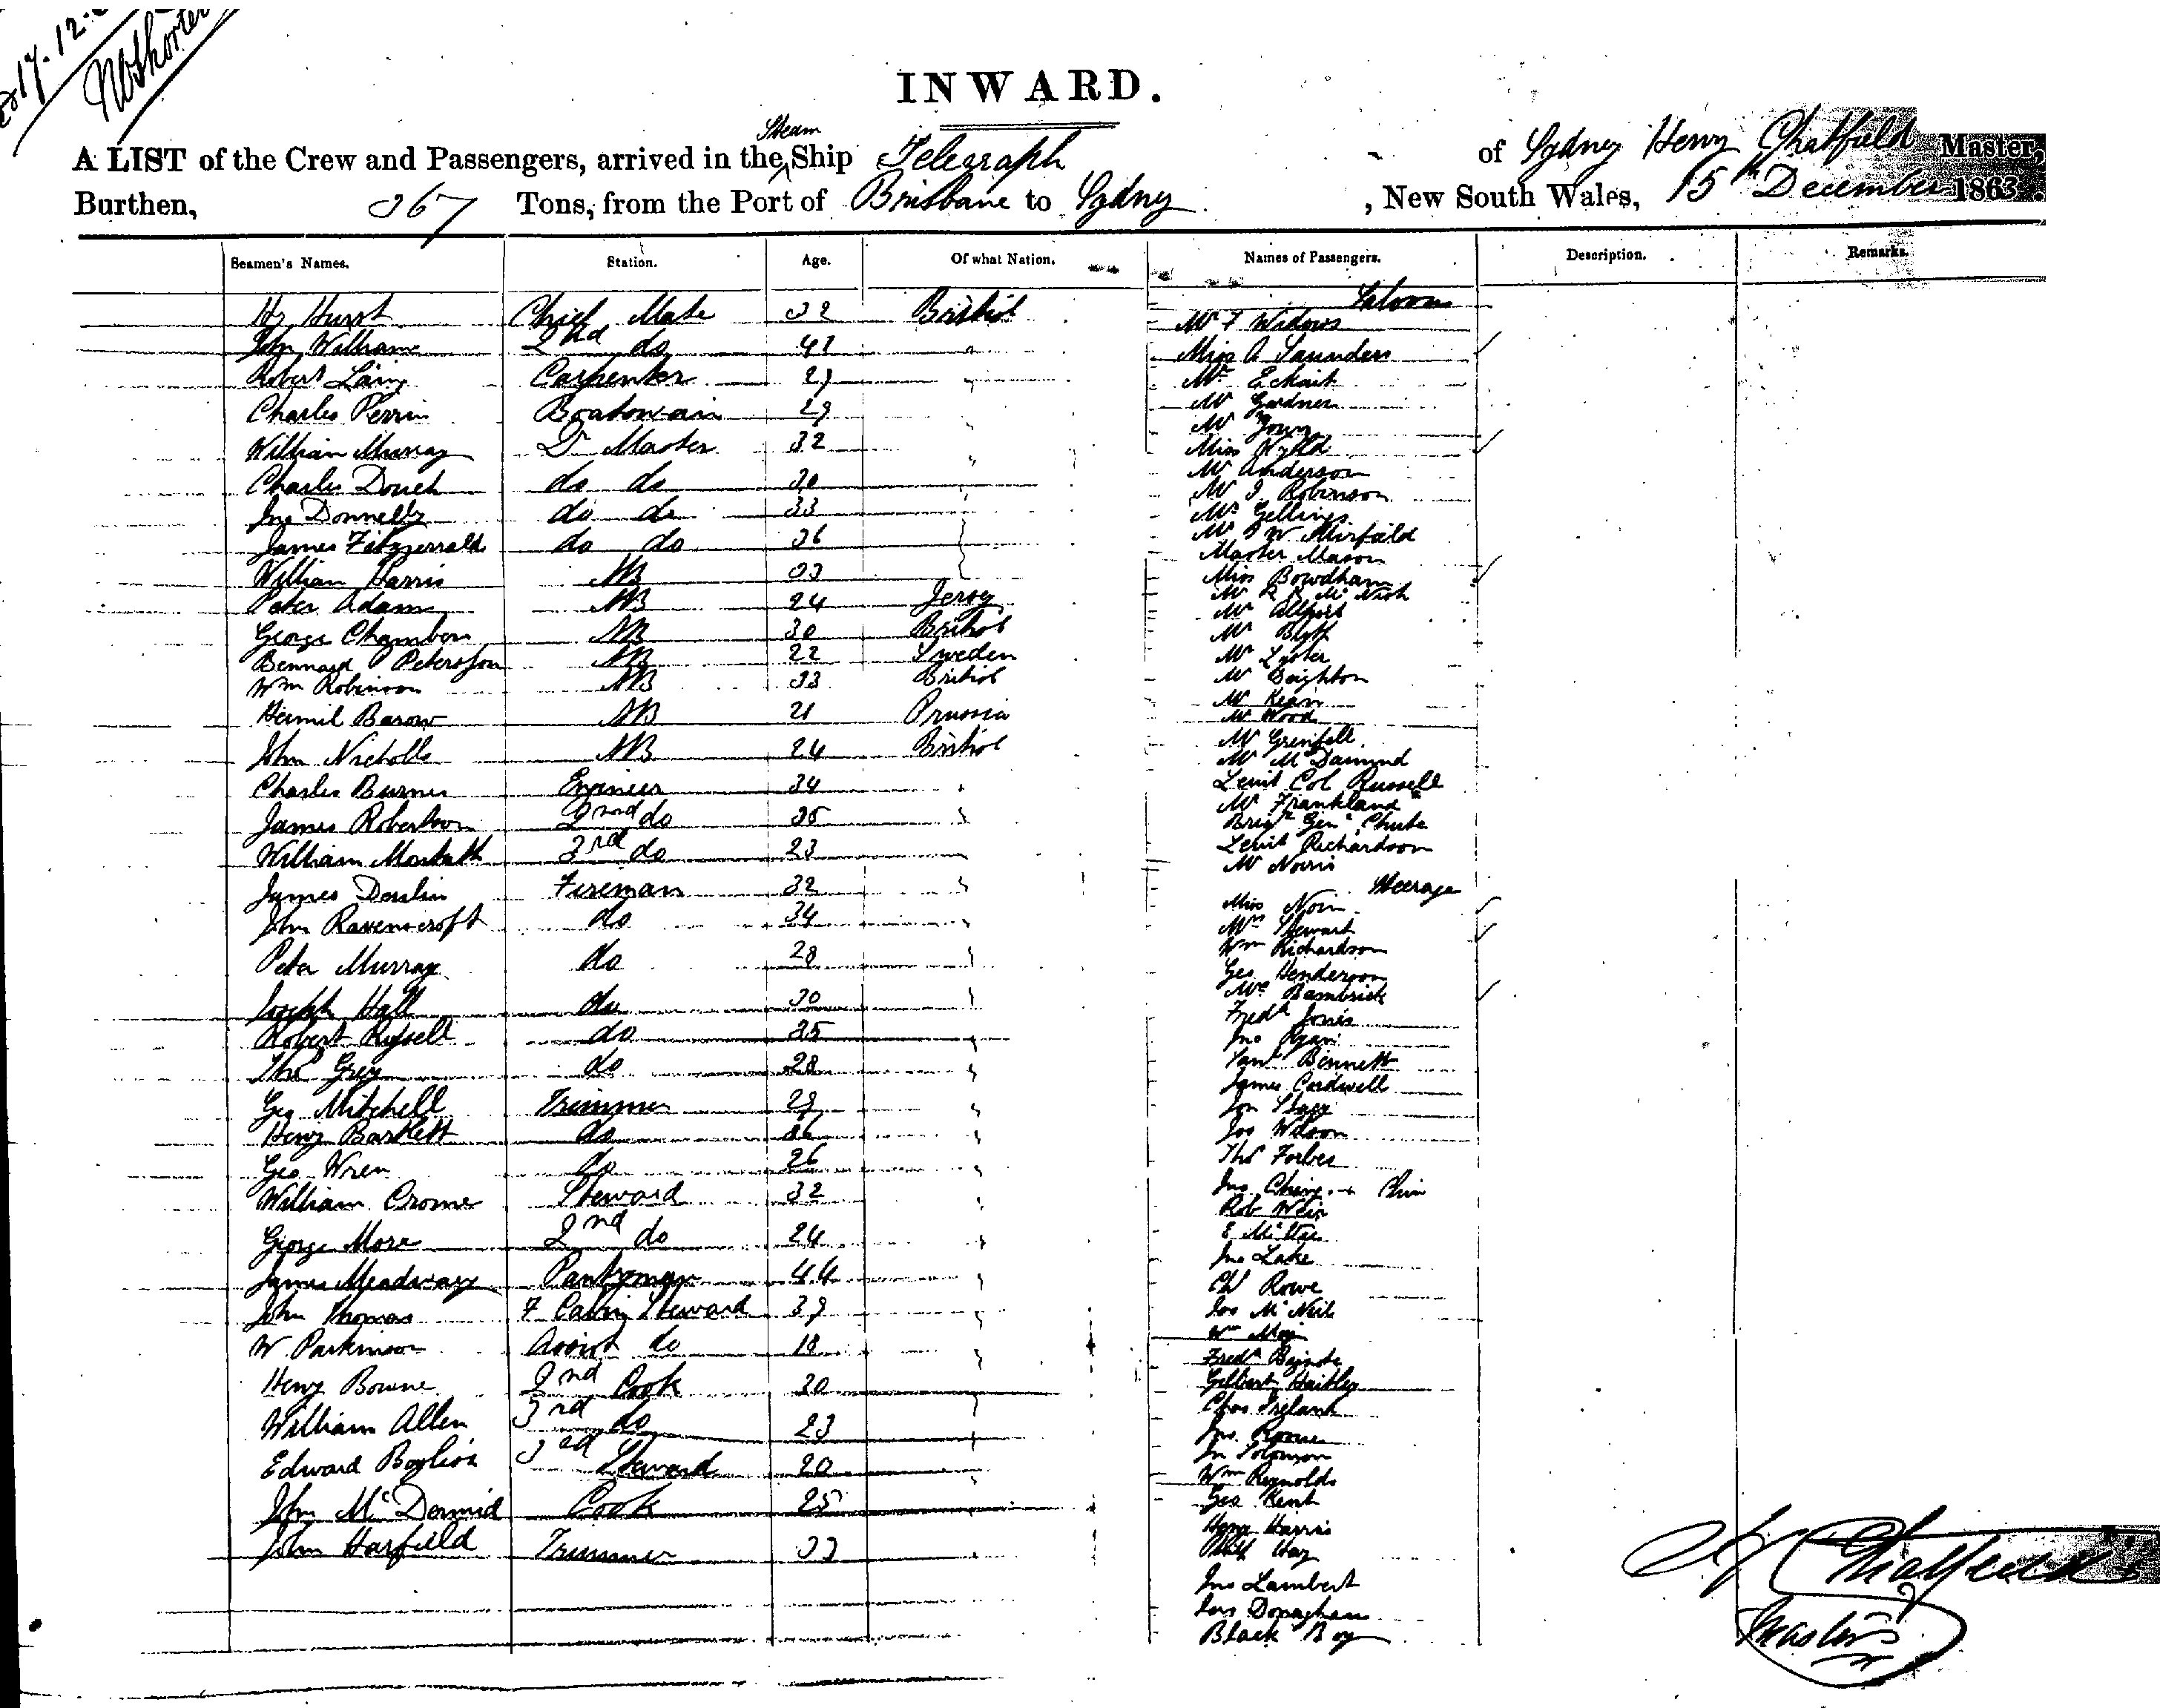 17.12.
INWARD.
A LIST of the Crew and Passengers, arrived in the Steam Ship Telegraph of Sydney Henry Chatfield Master,
Burthen, 367 Tons, from the Port of Brisbane to Sydney, New South Wales, 15th December 1863.
Seamen's Names. Station. Age. Of what Nation. Names of Passengers. Description. Remarks.
Hy Hurst Chief Mate 32 British
John Williams 2nd do 41 "
Robert Laing Carpenter 29 "
Charles Perrin Boatswain 29 "
William Murray Qr Master 32 "
Charles Douch do do 30 "
Jno Donnelly do do 33 "
James Fitzgerrald do do 36 "
William Harris AB 33 "
Peter Adams AB 24 Jersey
George Chambers AB 30 British
Bennard Petersson AB 22 Sweden
Wm Robinson AB 33 British
Hermil Barow AB 21 Prussia
John Nicholls AB 24 British
Charles Burnes Engineer 34 "
James Robertson 2nd do 35 "
William 3rd do 23 "
James Devlin Fireman 32 "
John Ravenscroft do 34 "
Peter Murray do 28 "
Joseph Hall do 30 "
Robert Russell do 35 "
Thos Grey do 28 "
Geo Mitchell Trimmer 29 "
Henry Bartlett do 36 "
Geo Wren do 26 "
William Crome Steward 32 "
George More 2nd do 24 "
James Meadway Pantryman 44 "
John Thomas F Cabin Steward 39 "
W Parkinson Assist do 18 "
Henry Bourne 2nd Cook 30 "
William Allen 3rd do 23 "
Edward 3rd Steward 20 "
John McDermid Cook 25 "
John Harfield Trimmer 33 "
Saloon
Mr F Widows
Miss A Saunders
Mr Eckart
Mr Gardner
Mr Young
Miss Wyld
Mr Anderson
Mr J Robinson
Mr Gellings
Mr W Mirfield
Master Mason
Miss Bowdham
Mr R R McNish
Mr Allport
Mr Blyth
Mr Lyster
Mr Deighton
Mr Kean
Mr Wood
Mr Grenfell
Mr McDarmid
Leuit Col Russell
Mr Frankland
Brigr Genl Chute
Leuit Richardson
Mr Norris
Steerage
Miss Noris
Mrs Stewart
Wm Richardson
Geo Henderson
Mrs Bambrick
Fredk Jones
Jno Ryan
Saml Bennett
James Cardwell
Jos Wilson
Thos Forbes
Rob Weir
Jno Lake
Ch Rowe
Jos McNeil
Wm May
Fredk
Gilbert
Chas Ireland
Jno
Jn Solomon
Wm Reynolds
Geo Kent
Henry Harris
Hay
Jno Lambert
Jas Donaghan
Black Boy
Hy Chatfield
Master